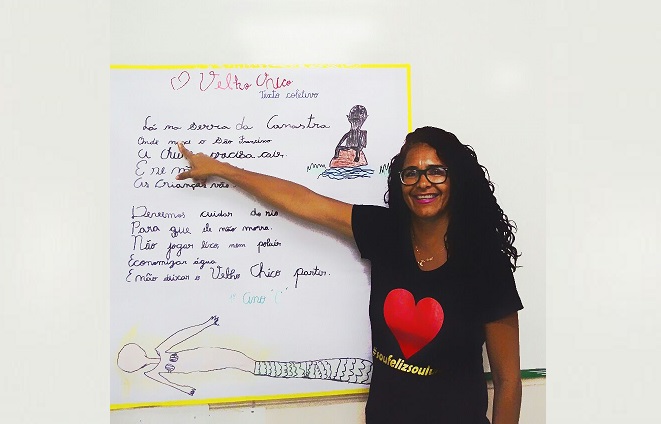 Velho Chico
Texto coletivo
Lá na Serra da Canastra
Onde nasce o São Francisco
A chuva precisa cair.
E se não
As crianças vão
Devemos cuidar do rio
Para que ele não morra.
Não jogar lixo, nem poluir
Economizar água
E não deixar o Velho Chico partir.
"ano "C"
#soufelizsou